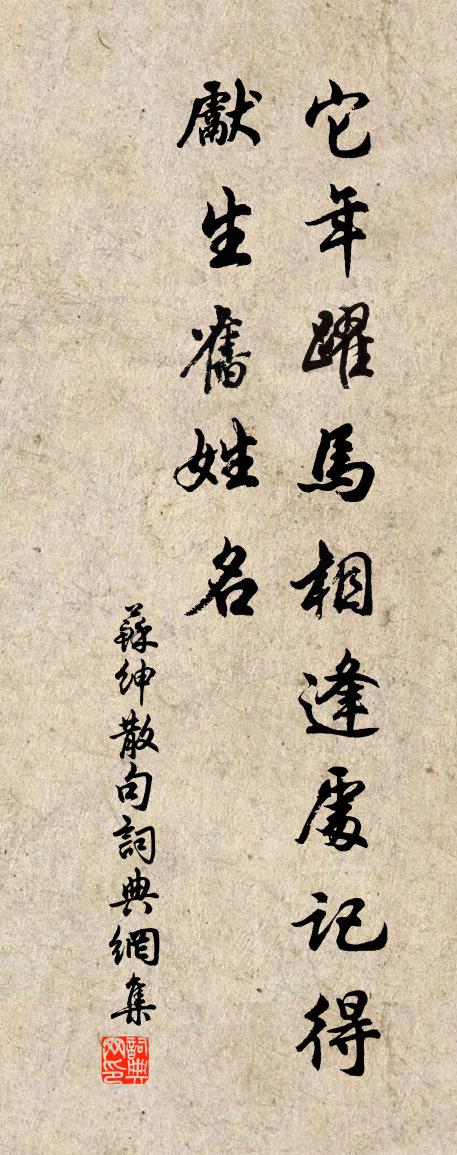 它年躍馬相逢處記得
獻生舊姓名
蘇紳散句詞典網集
詞典网印